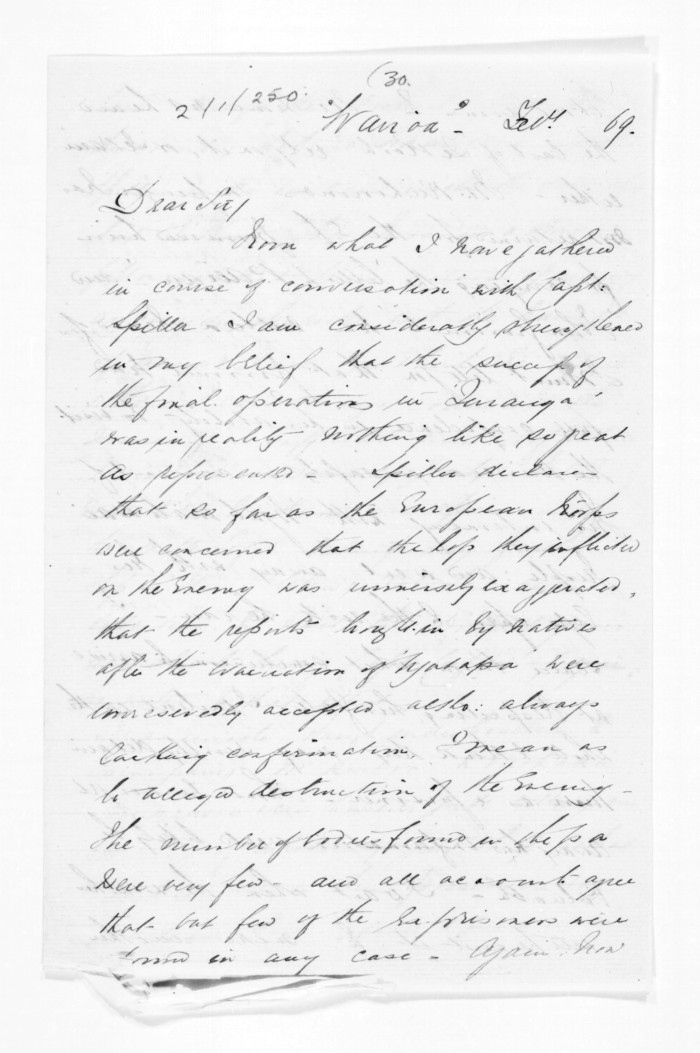 (30.
211/250
"Wairoa" - Feby 69.
Dear Sir/
From what I have gathered
in course of conversation with Capt:
Spiller I am considerably strengthened
in my belief that the success of
the final operations in 'Turanga'
was in reality nothing like so great
as represented - Spiller declares
that so far as the European troops
were concerned that the loss they inflicted
on the Enemy was immensely exaggerated,
that the reports brought in by natives
after the evacuation of 'Ngatapa' were
unreservedly accepted altho: always
lacking confirmation, I mean as
to alleged destruction of the Enemy -
The number of bodies found in the pa
were very few - and all accounts agree
that but few of the Ex prisoners were
found in any case - Again. How